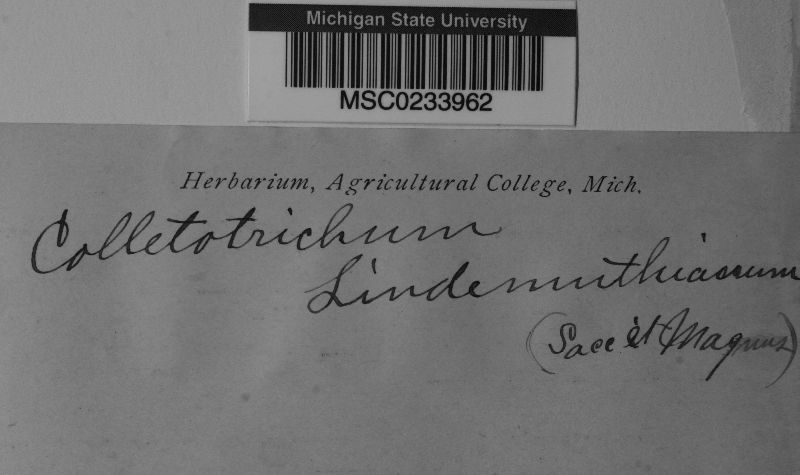 Michigan State University
MSC0233962
Herbarium, Agricultural College, Mich.
Colletotrichum
Lindemuthianum
(Sacc et Magnus)